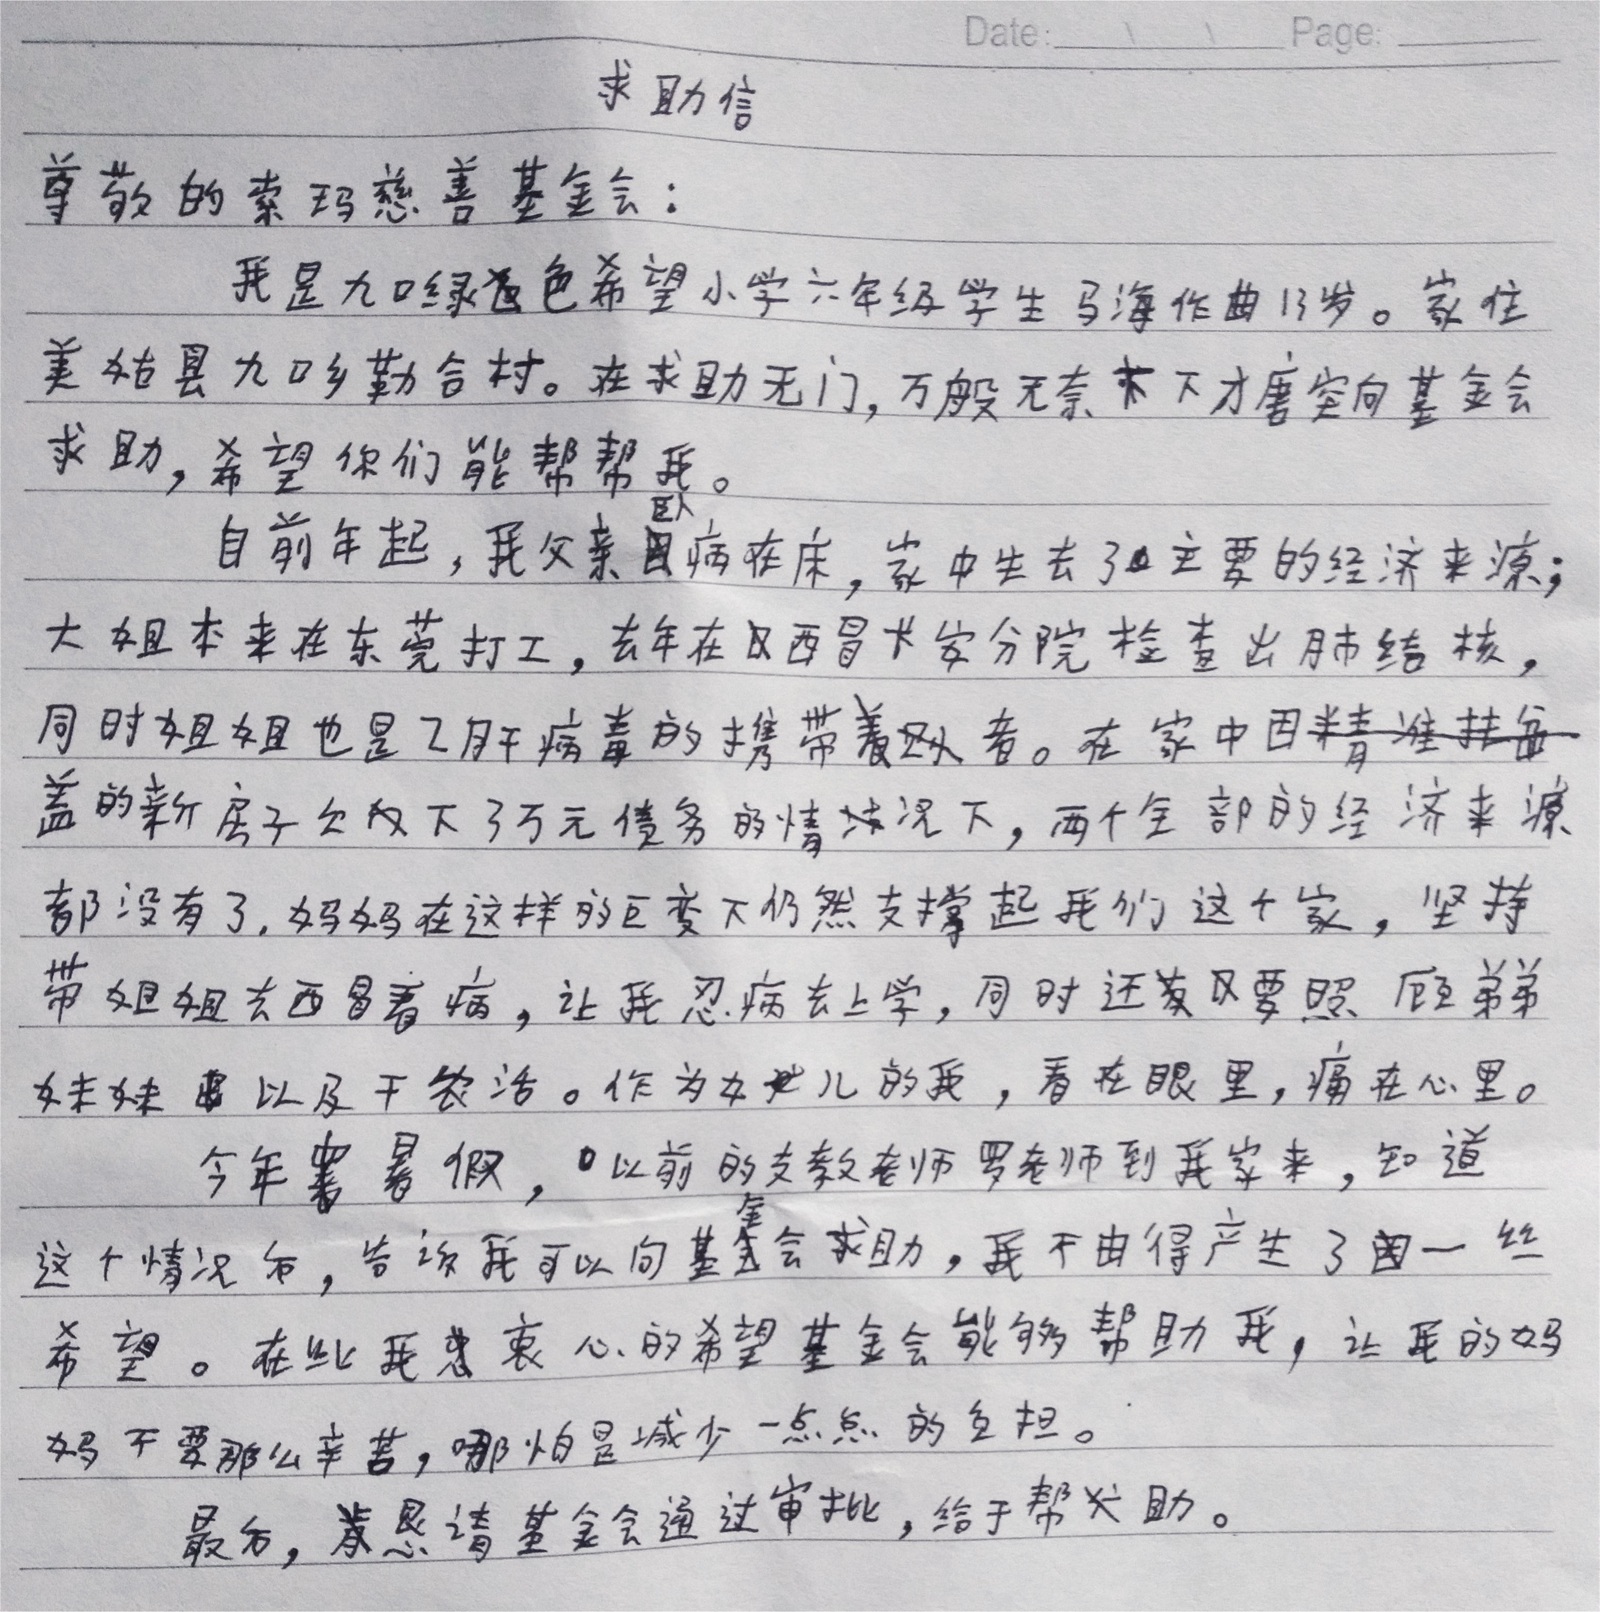 Date: Page:
求助信
尊敬的索玛慈善基金会：
我是九口绿色希望小学六年级学生马海作曲13岁。家住
美姑县九口乡勒合村。在求助无门，万般无奈下才唐突向基金会
求助，希望你们能帮帮我。
自前年起，我父亲卧病在床，家中失去了主要的经济来源；
大姐本来在东莞打工，去年在西昌长安分院检查出肺结核，
同时姐姐也是乙肝病毒的携带者。在家中因精准扶贫
盖的新房子欠下3万元债务的情况下，两个全部的经济来源
都没有了。妈妈在这样的巨变下仍然支撑起我们这个家，坚持
带姐姐去西昌看病，让我忍病去上学，同时还要照顾弟弟
妹妹以及干农活。作为女儿的我，看在眼里，痛在心里。
今年暑假，以前的支教老师罗老师到我家来，知道
这个情况后，告诉我可以向基金会求助，我不由得产生了一丝
希望。在此我衷心的希望基金会能够帮助我，让我的妈
妈不要那么辛苦，哪怕是减少一点点的负担。
最后，恳请基金会通过审批，给于帮助。